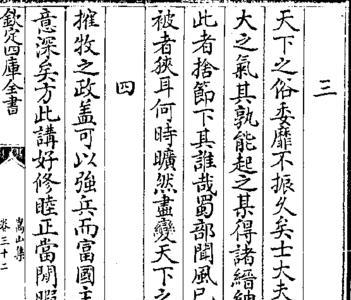 三
天下之俗委靡不振久矣士大夫
大之氣其孰能起之某得諸縉紳
此者捨節下其誰哉蜀部聞風已
被者狹耳何時曠然盡變天下之
四
搉牧之政葢可以強兵而富國主
意深矣方此講好修睦正當閒暇
欽定四庫全書
嵩山集
卷三十二